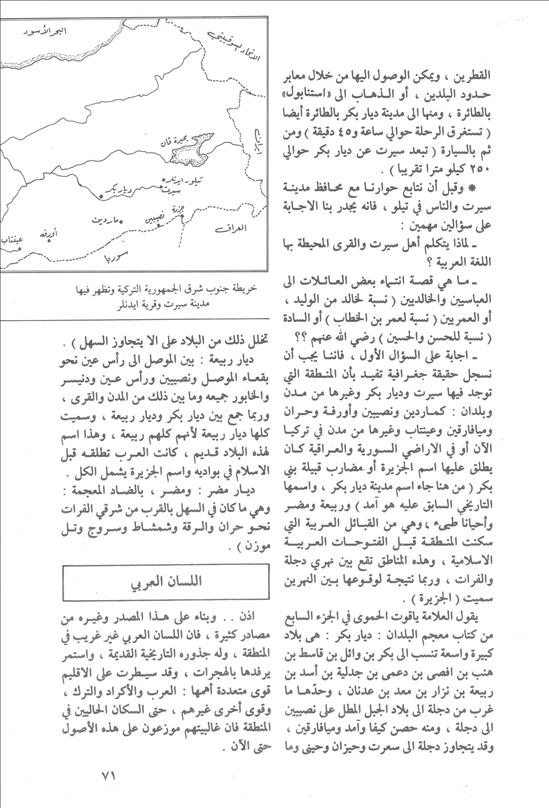 القطرين ، ويمكن الوصول اليها من خلال معابر
حدود البلدين ، أو الذهاب الى «استنابول»
بالطائرة ، ومنها الى مدينة ديار بكر بالطائرة أيضا
( تستغرق الرحلة حوالي ساعة و٤٥ دقيقة ) ومن
ثم بالسيارة ( تبعد سيرت عن ديار بكر حوالي
٢٥٠ كيلو مترا تقريبا ) .
* وقبل أن نتابع حوارنا مع محافظ مدينة
سيرت والناس في تيلو ، فانه يجدر بنا الاجابة
على سؤالين مهمين :
ـ لماذا يتكلم أهل سيرت والقرى المحيطة بها
اللغة العربية ؟
ـ ما هي قصة انتماء بعض العائلات الى
العباسيين والخالديين ( نسبة لخالد من الوليد ،
أو العمريين ( نسبة لعمر بن الخطاب ) أو السادة
( نسبة للحسن والحسين ) رضي الله عنهم ؟؟
ـ اجابة على السؤال الأول ، فاننا يجب أن
نسجل حقيقة جغرافية تفيد بأن المنطقة التي
توجد فيها سيرت وديار بكر وغيرها من مدن
وبلدان : كماردين ونصيبين وأورفة وحران
وميافارقين وعينتاب وغيرها من مدن في تركيا
الآن أو في الاراضي السورية والعراقية كان
يطلق عليها اسم الجزيرة أو مضارب قبيلة بني
بكر ( من هنا جاء اسم مدينة ديار بكر ، واسمها
التاريخي السابق عليه هو آمد ) وربيعة ومضر
وأحيانا طيىء ، وهي من القبائل العربية التي
سكنت المنطقة قبل الفتوحات العربية
الاسلامية ، وهذه المناطق تقع بين نهري دجلة
والفرات ، وربما نتيجة لوقوعها بين النهرين
سميت ( الجزيرة ) .
يقول العلامة ياقوت الحموى في الجزء السابع
من كتاب معجم البلدان : ديار بكر : هى بلاد
كبيرة واسعة تنسب الى بكر بن وائل بن قاسط بن
هنب بن افصى بن دعمى بن جدلية بن أسد بن
ربيعة بن نزار بن معد بن عدنان ، وحدّها ما
غرب من دجلة الى بلاد الجبل المطل على نصيبين
الى دجلة ، ومنه حصن كيفا وآمد وميافارقين ،
وقد يتجاوز دجلة الى سعرت وحيزان وحينى وما
البحر الأسود
الاتحاد السوفييتي
ايران
بحيرة فان
تيلو - ايدنلر
سيرت
ديار بكر
جزرة
نصيبين
ماردين
أورفه
عينتاب
العراق
سوريا
خريطة جنوب شرق الجمهورية التركية وتظهر فيها
مدينة سيرت وقرية ايدنلر
تخلل ذلك من البلاد على الا يتجاوز السهل ) .
ديار ربيعة : بين الموصل الى رأس عين نحو
بقعاء الموصل ونصيبين ورأس عين ودنيسر
والخابور جميعه وما بين ذلك من المدن والقرى ،
وربما جمع بين ديار بكر وديار ربيعة ، وسميت
كلها ديار ربيعة لأنهم كلهم ربيعة ، وهذا اسم
لهذه البلاد قديم ، كانت العرب تطلقه قبل
الاسلام في بواديه واسم الجزيرة يشمل الكل .
ديار مضر : ومضر ، بالضاد المعجمة :
وهي ما كان في السهل بالقرب من شرقي الفرات
نحو حران والرقة وشمشاط وسروج وتل
موزن ) .
اللسان العربي
اذن .. وبناء على هذا المصدر وغيره من
مصادر كثيرة ، فان اللسان العربي غير غريب في
المنطقة ، وله جذوره التاريخية القديمة ، واستمر
يرفدها بالهجرات ، وقد سيطرت على الاقليم
قوى متعددة أهمها : العرب والأكراد والترك ،
وقوى أخرى غيرهم ، حتى السكان الحاليين في
المنطقة فان غالبيتهم موزعون على هذه الأصول
حتى الآن .
٧١